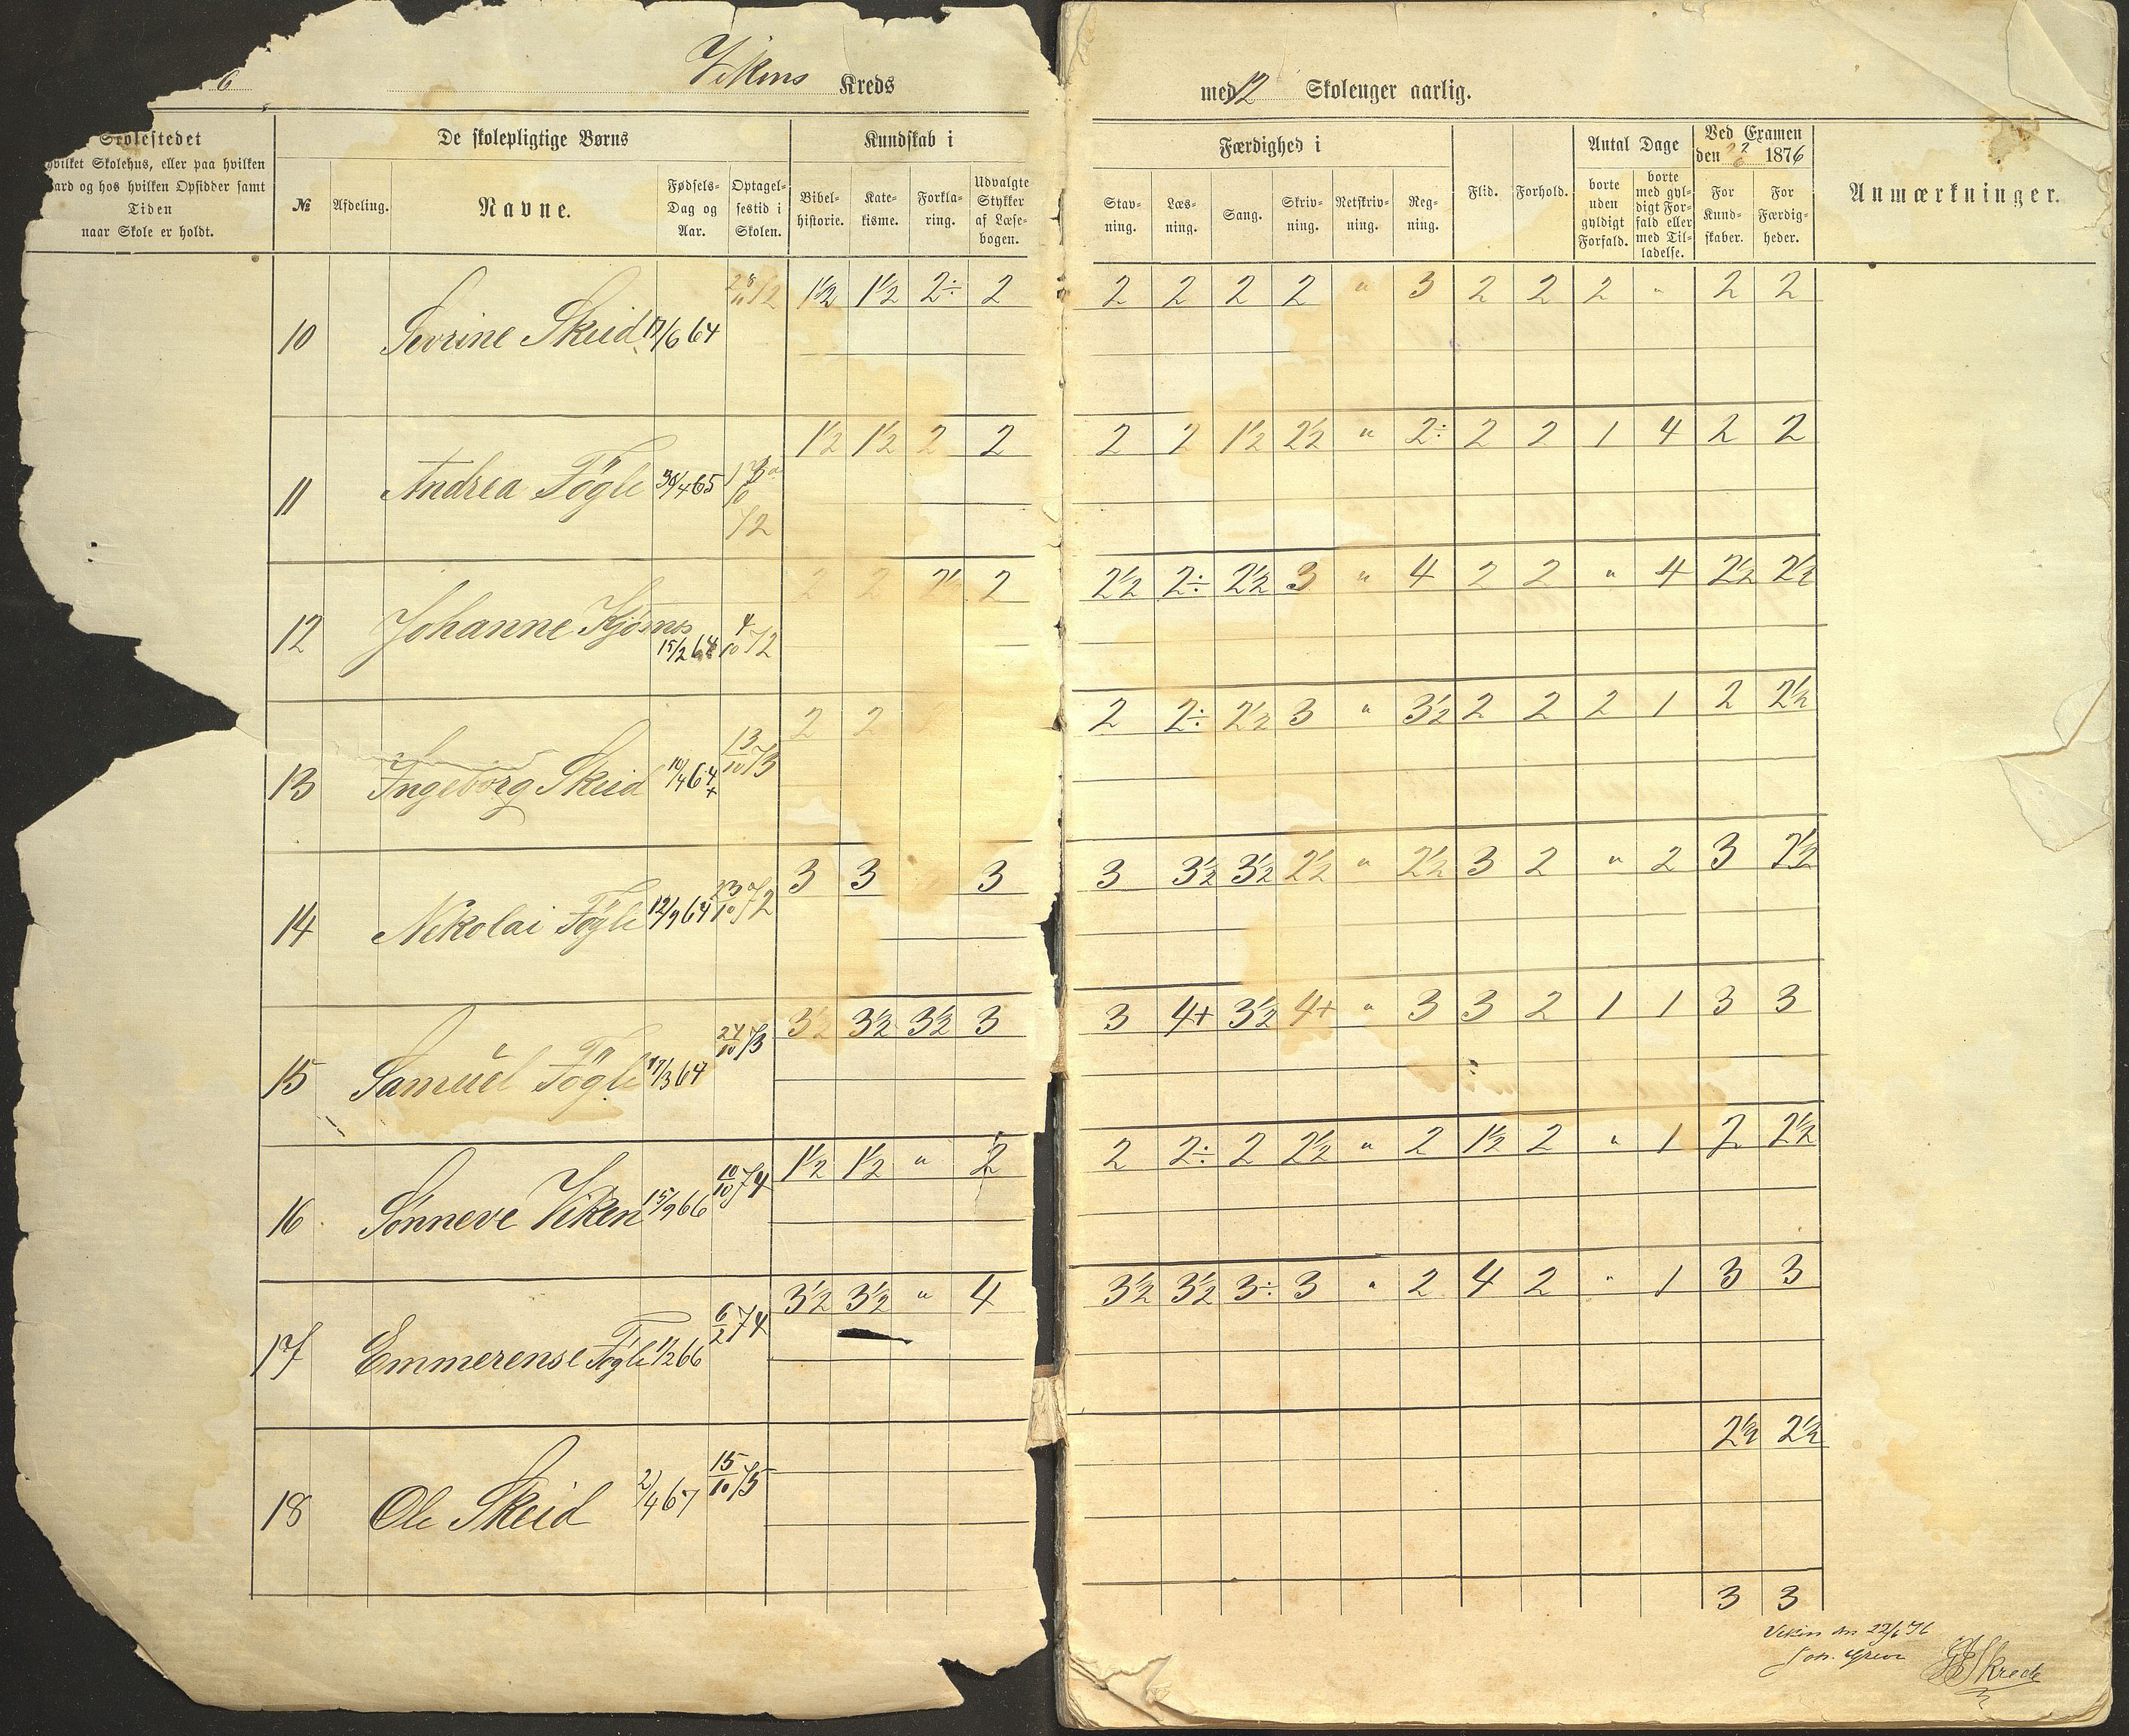 6 Vikens Kreds med 12 Skoleuger aarlig.
Skolestedet
hvilket Skolehus, eller paa hvilken
Gaard og hos hvilken Opsidder samt
Tiden
naar Skole er holdt.
De skolepligtige Børns
№ Afdeling. Navne. Fødsels-Dag og Aar. Optagel-sestid i Skolen.
Kundskab i
Bibel-historie. Kate-kisme. Forkla-ring. Udvalgte Stykker af Læse-bogen.
Færdighed i
Stav-ning. Læs-ning. Sang. Skriv-ning. Retskriv-ning. Reg-ning.
Flid. Forhold.
Antal Dage
borte uden gyldigt Forfald. borte med gyl-digt For-fald eller med Til-ladelse.
Ved Examen
den 22/6 1876
For Kund-skaber. For Færdig-heder.
Anmærkninger.
10 Sevrine Skeid 17/6 64 1½ 1½ 2÷ 2 2 2 2 2 " 3 2 2 2 " 2 2
11 Andrea Fögle 30/4 65 72 1½ 1½ 2 2 2 2 1½ 2½ " 2÷ 2 2 1 4 2 2
12 Johanne 15/2 64 4/10 72 2 2 2½ 2 2½ 2÷ 2½ 3 " 4 2 2 " 4 2½ 2½
13 Ingeborg Skeid 10/4 64 + 13/10 73 2 2 2 2÷ 2½ 3 " 3½ 2 2 2 1 2 2½
14 Nikolai Fögle 12/9 64 23/10 72 3 3 3 3 3½ 3½ 2½ " 2½ 3 2 " 2 3 2½
15 Samuel Fögle 17/3 64 24/10 73 3½ 3½ 3½ 3 3 4+ 3½ 4+ " 3 3 2 1 1 3 3
16 Sønneve Viken 15/9 66 10/10 74 1½ 1½ " 2 2 2÷ 2 2½ " 2 1½ 2 " 1 2 2½
17 Emmerense Fögle 1/2 66 6/2 74 3½ 3½ " 4 3½ 3½ 3÷ 3 " 2 4 2 " 1 3 3
18 Ole Skeid 2/4 67 15/10 75 2½ 2½
3 3
Viken den 22/6 76
Skrede